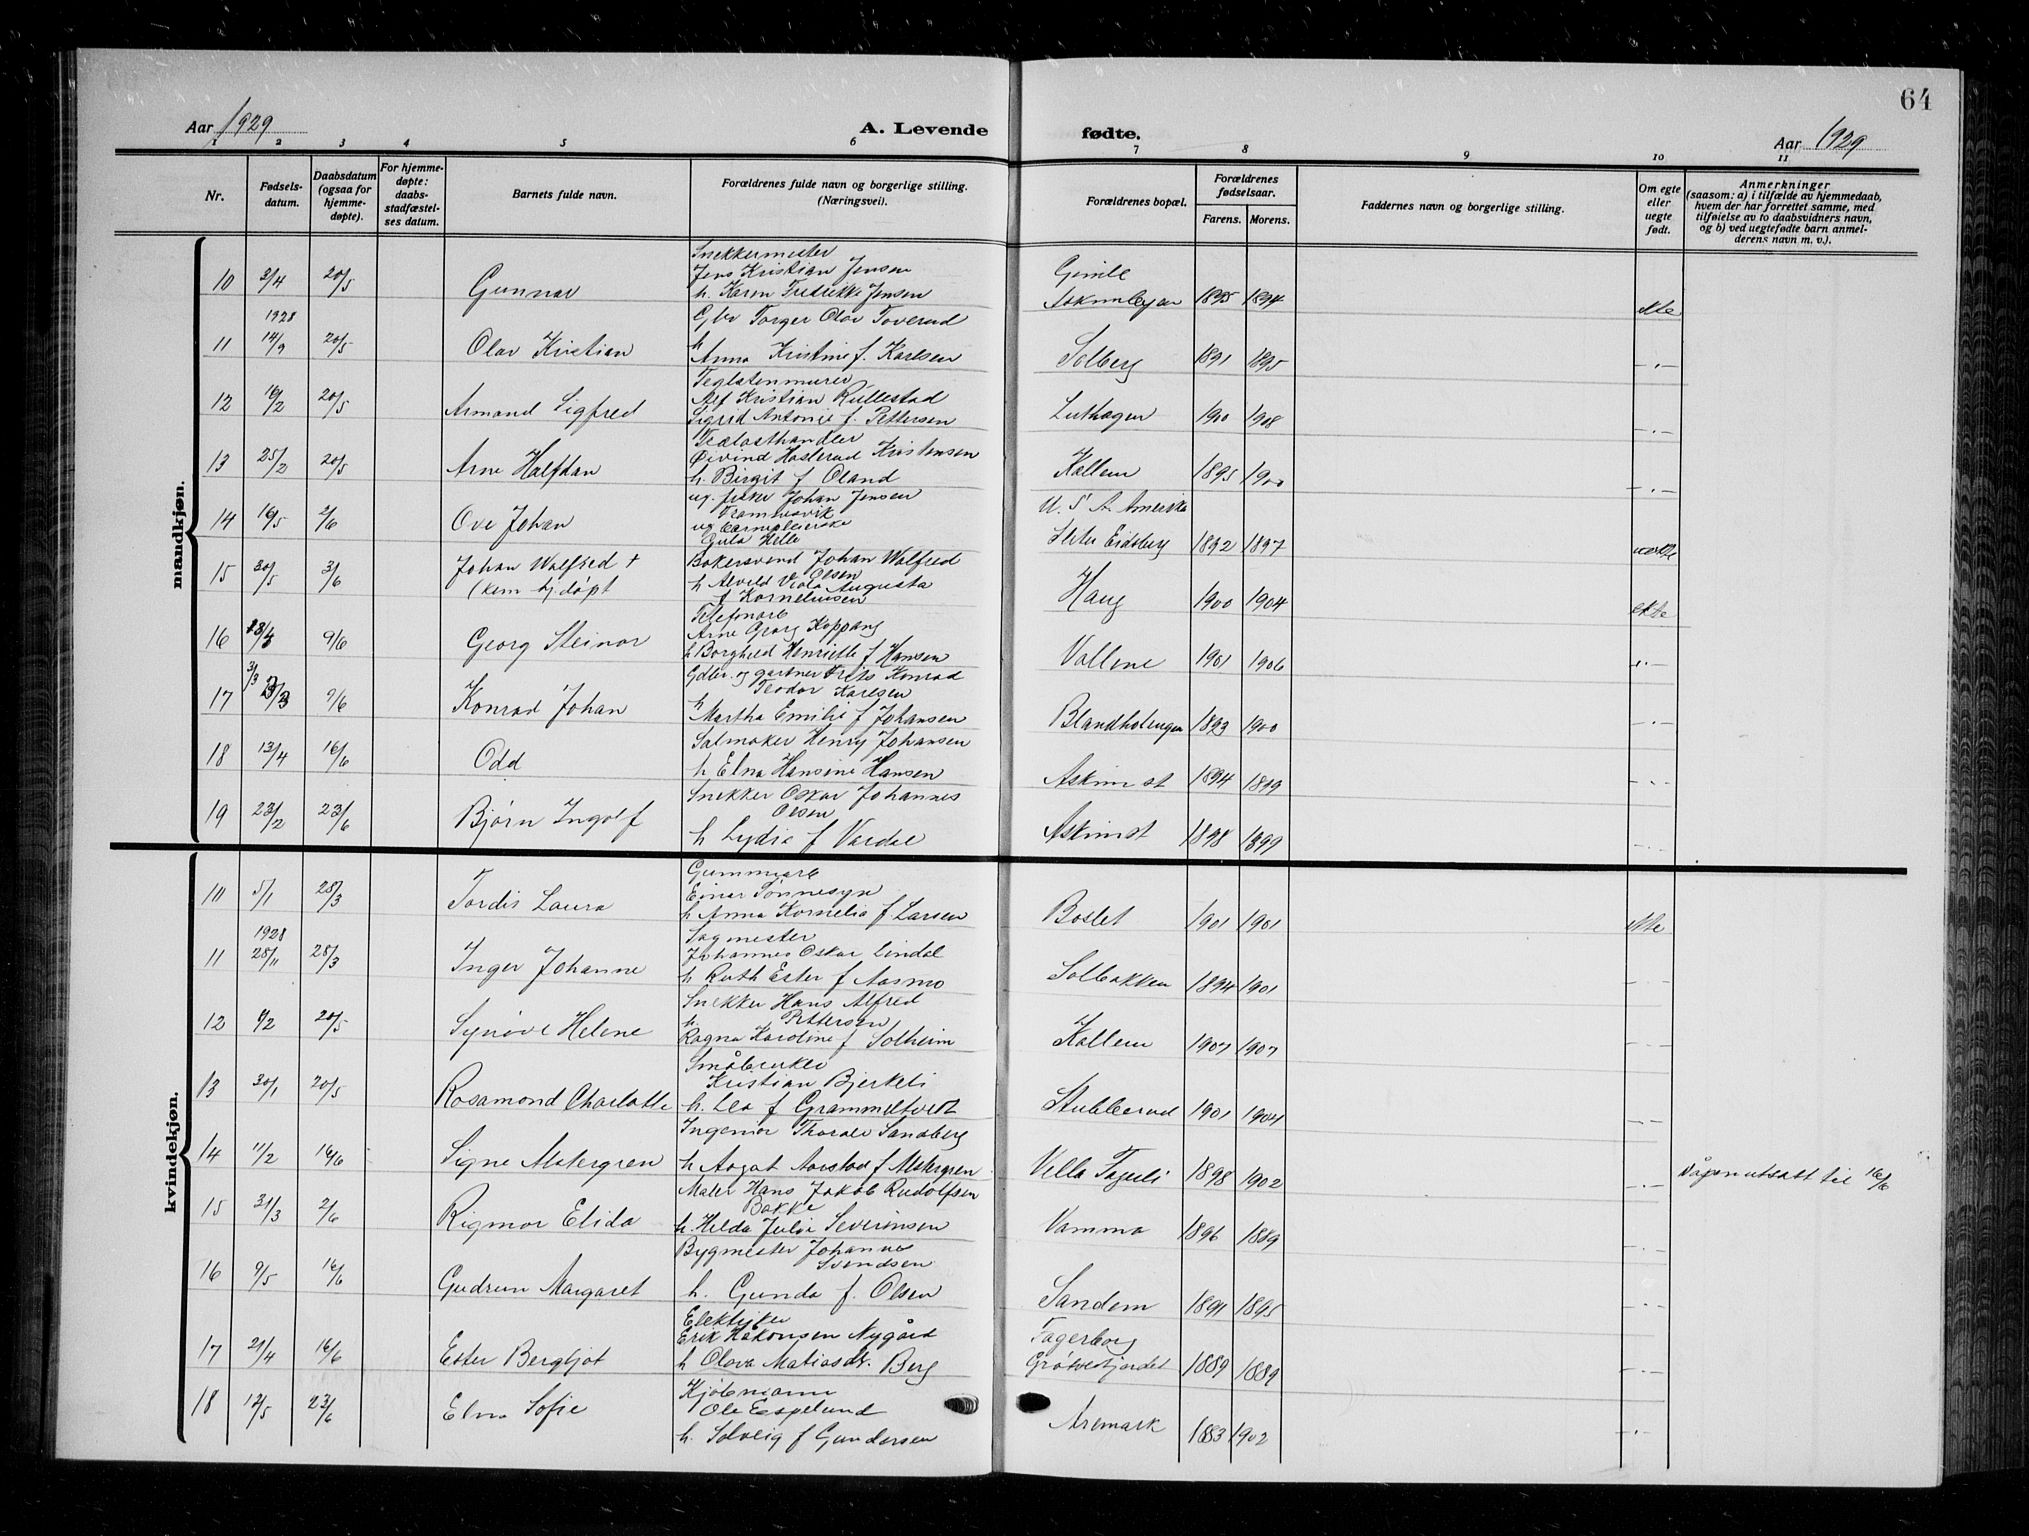 64
Aar 1929
A. Levende fødte.
Aar 1929
1 2 3 4 5 6 7 8 9 10 11
Nr.
Fødsels-
datum.
Daabsdatum
(ogsaa for
hjemme-
døpte).
For hjemme-
døpte:
daabs-
stadfæstel-
ses datum.
Barnets fulde navn.
Forældrenes fulde navn og borgerlige stilling.
(Næringsvei).
Forældrenes bopæl.
Forældrenes
fødselsaar.
Farens. Morens.
Faddernes navn og borgerlige stilling.
Om egte
eller
uegte
født.
Anmerkninger
(saasom: a) i tilfælde av hjemmedaab,
hvem der har forrettet samme, med
tilføielse av to daabsvidners navn,
og b) ved uegtefødte barn anmel-
derens navn m. v.).
mandkjøn.
Snekkermester
10 2/4 20/5 Gunnar Jens Kristian Jensen
h. Karen Fredrikke Jensen Askimbyen 1895 1894 ekte
1928
11 14/9 20/5 Olav Kristian Gbr Torger Olav Toverud
h
Anna Kristine f. Karlsen Solberg 1891 1895 - " -
12 16/2 20/5 Armand Sigfred
Alf Kristian Rullestad
Sigrid Antonie f. Pettersen 1900 1908 - " -
13 25/2 20/5 Arne Halfdan
Øivind Hasterud Kristensen
h. Birgit f Oland Kallem 1895 1900 - " -
14 16/5 2/6 Ove Johan
ug. fisker Johan Jensen U. S. A. Amerika
Eidsberg 1892 1897 uekte
15 30/5 3/6 Johan Walfred +
(kem hj. døpt
Bakersvend Johan Walfred
Olsen
h Alvild Viola Augusta
f Korneliussen Haug 1900 1904 ekte
16 9/6 Georg Steinar
Telefonarb
Arne Georg Koppang
h Borghild Henriette f Hansen Vallene 1901 1906 " -
17 3/3 9/6 Konrad Johan
Gdbr. og gartner Frits Konrad
Teodor Karlsen
h
Martha Emilie f Johansen 1893 1900 - " -
18 13/4 16/6 Odd
Salmaker Henry Johansen
h Elna Hansine Hansen Askim st 1894 1899 - " -
19 23/2 23/6 Bjørn Ingolf
Snekker Oskar Johannes
Olsen
h Lydia f Vardal Askim st 1898 1899 - " -
kvindekjøn.
11 5/1 28/3 Tordis Laura
Gummiarb
Einar Tønnesyn
h Anna Kornelia f. Larsen Boslet 1901 1901 ekte
1928
11 28/11 28/3 Inger Johanne
Sagmester
Johannes Oskar Lindal
h Ruth Ester f Aasmo Solbakken 1894 1901 - " -
12 6/2 20/5 Synøve Helene
Snekker Hans Alfred
h. Pettersen
Ragna Karoline f Solheim Kallem 1907 1907 - " -
13 30/1 20/5 Rosamond Charlotte
Småbruker
Kristian Bjerkeli
h. Lea f Grammeltvedt Stubberud 1901 1904 - " -
14 11/2 16/6 Signe Malergren
Ingeniør Thorale Sandberg
h Aagot Aarstad f Malergren Villa 1898 1902 - " - Dåpen utsatt til 16/6
15 31/3 2/6 Rigmor Elida
Maler Hans Jakob Rudolfsen
Bakke
h. Helda Julie Severinsen Vamma 1896 1889 - " -
16 9/5 16/6 Gudrun Margaret
Bygmester Johannes
Svendsen
h. Gunda f. Olsen Sandem 1891 1895 - " -
17 21/4 16/6 Ester Bergljot
Erik Håkonsen Nygård Fagerborg
h Olava Matiasdt. Berg 1889 1889 - " -
18 12/5 23/6 Elna Sofie
Kjøbmann
Ole Espelund
h. Solveig f Gundersen Aremark 1883 1902 - " -